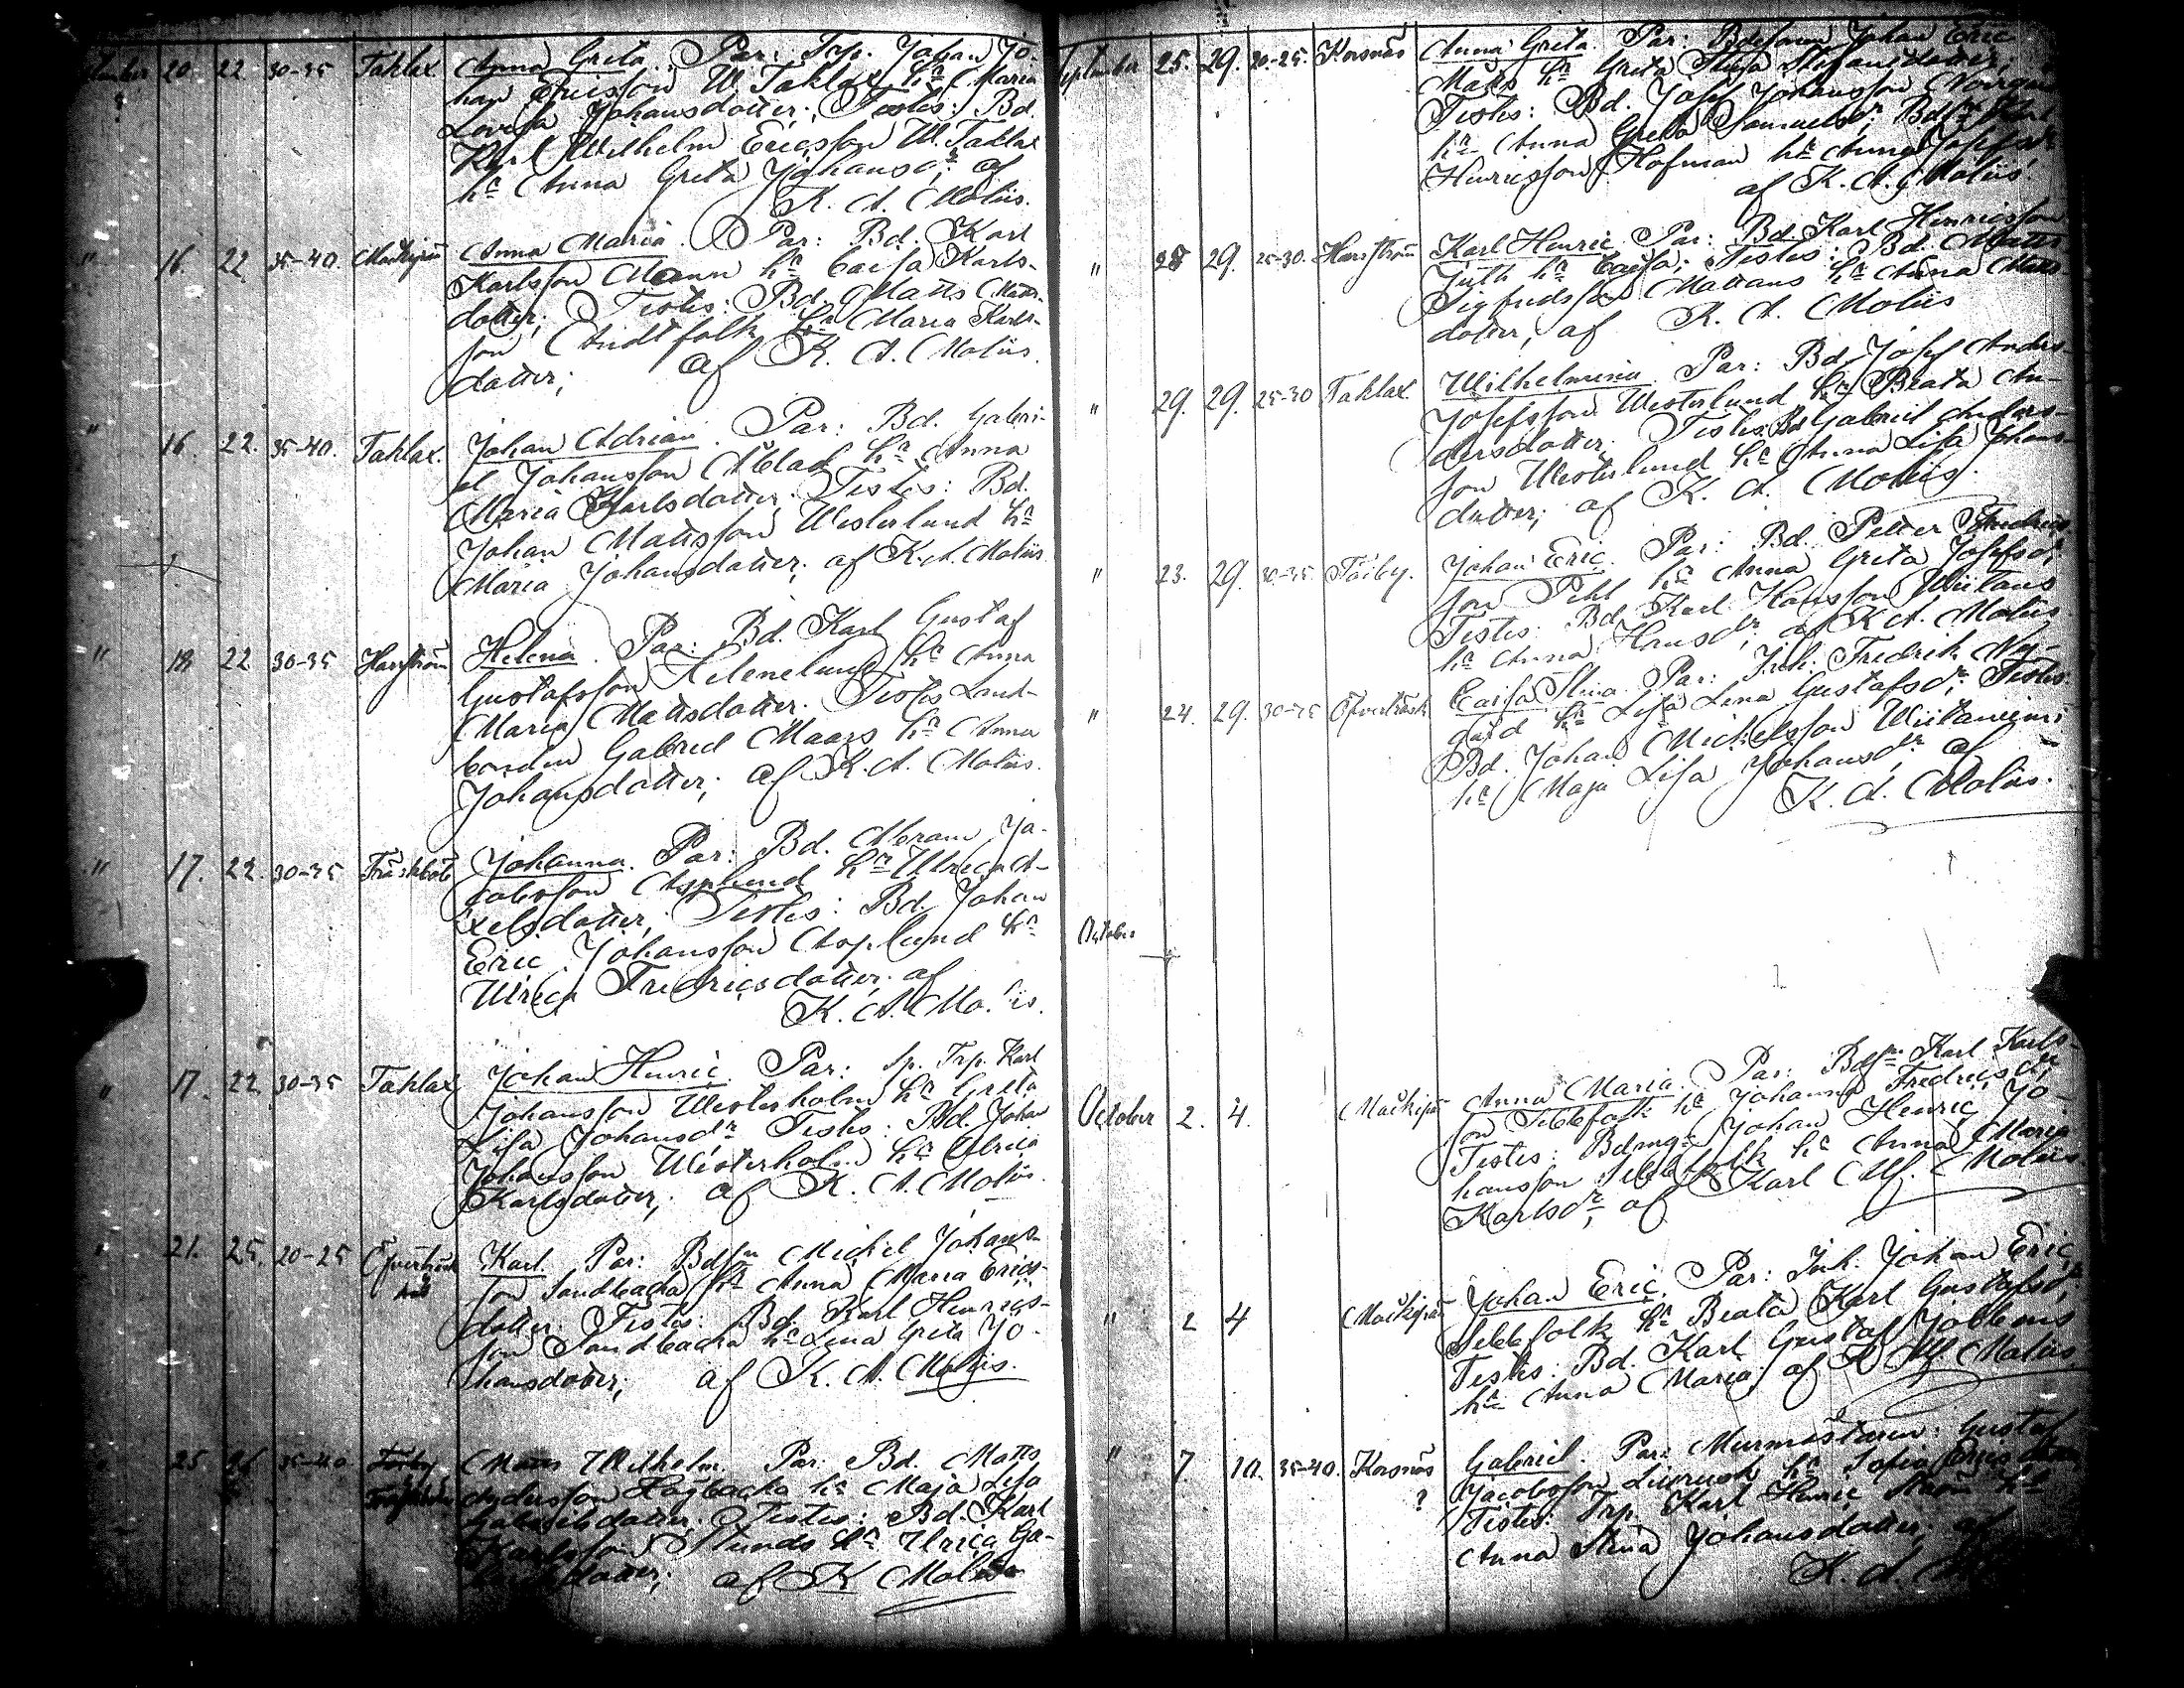 20. 22 30-35 Taklax Anna Greta. Par: Trp. Johan Jo-
han Ericsson W. Taklax hn Maria
Lovisa Johansdotter; Testes: Bd.
Karl Wilhelm Ericsson W. Taklax
hn Anna Greta Johansdr; af
K. A. Moliis.
" 16. 22 35-40. Anna Maria. Par: Bd. Karl
Karlsson Mann hn Caisa Karls-
dotter; Testes: Bd. Matts Matts-
son Andtfolk hn Maria Karls-
dotter; af K. A. Moliis.
" 16. 22. 35-40. Taklax. Johan Adrian. Par: Bd. Gabri-
el Johansson hn Anna
Maria Karlsdotter. Testes: Bd.
Johan Mattsson Westerlund hn
Maria Johansdotter; af K. A. Moliis
" 18 22 30-35 Harrström Helena. Par: Bd. Karl Gustaf
Gustafsson Helenelund hn Anna
Maria Mattsdotter. Testes Land-
bonden Gabriel Maars hn Anna
Johansdotter; af K. A. Moliis.
" 17. 22. 30-35 Träskböle Johanna. Par: Bd. Abram Ja-
cobsson Asplund hn Ulrica A-
xelsdotter; Testes: Bd. Johan
Eric Johansson Asplund hn
Ulrica Fredricsdotter; af
K. A. Moliis.
" 17. 22 30-35 Taklax Johan Henric. Par: Sp. Trp. Karl
Johansson Westerholm hn Greta
Lisa Johansdr Testes: Bd. Johan
Johansson Westerholm hn Ulrica
Karlsdotter; af K. A. Moliis.
" 21. 25. 20-25 Öfverträsk Karl. Par: Bdsn Michel Johans-
son Sandbacka hn Anna Maria Erics-
dotter. Testes: Bd. Karl Henrics-
son Sandbacka hn Lena Greta Jo-
hansdotter; af K. A. Moliis.
25 35-40 Matts Wilhelm. Par: Bd. Matts
Andersson Högbacka hn Maja Lisa
Gabrielsdotter. Testes: Bd. Karl
Karlsson hn Ulrica Ga-
brielsdotter; af K Moliis
September 25. 29. 20-25. Korsnäs Anna Greta. Par: Johan Eric
Matts hn Greta Stina Stefansdotter;
Testes: Bd. Josef Johansson
hn Anna Greta Samuelsdr; Bdsn Karl
Henricsson Hofman hn Anna Josefsdr
af K. A. Moliis.
" 28 29. 25-30. Harrström Karl Henric Par: Bd. Karl Henricsson
Juth hn Caisa; Testes: Bd. Matts
Sigfridsson Mattans hn Anna Matts-
dotter, af K. A. Moliis
" 29. 29. 25-30 Taklax. Wilhelmina Par: Bd. Josef Anders-
Josefsson Westerlund hn Beata An-
dersdotter; Testes: Bd Gabriel Anders-
son Westerlund hn Anna Lisa Johans-
dotter; af K. A. Moliis.
" 23. 29. 30-35 Töjby. Johan Eric. Par: Bd. Petter Fredrics-
son Pihl hn Anna Greta Josefsdr;
Testes: Bd. Karl Hansson Wiitans
hn Anna Hansdr; af K. A. Moliis
" 24. 29. 30-35 Öfverträsk Caisa Stina. Par: Inh. Fredrik Ny-
gård hn Lisa Lena Gustafsdr; Testes:
Bd. Johan Michelsson Wiitaniemi
hn Maja Lisa Johansdr af
K. A. Moliis.
October
October 2. 4. Anna Maria. Par: Bdsn Karl Karls-
son Sebbfolk hn Johanna Fredricsdr;
Testes: Bdmg Johan Henric Jo-
hansson Sebbfolk hn Anna Maria
Karlsdr; af Karl Alf. Moliis
" 2 4 Johan Eric. Par: Inh. Johan Eric
Sebbfolk hn Beata Karl Gustafsdr;
Testes: Bd. Karl Gustaf Jobbens
hn Anna Maria af K Alf Moliis
" 7 10. 35-40. Korsnäs ? Gabriel. Par: Murmästaren: Gustaf
Jacobsson hn Sofia
Testes: Trp. Karl Henric Ström hn
Anna Stina Johansdotter; af
K. A.